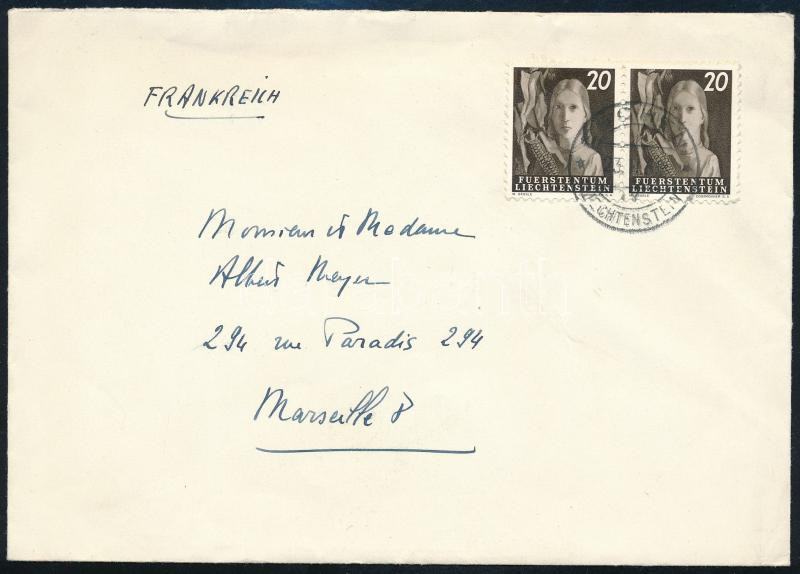 FRANKREICH
20
20
FUERSTENTUM
LIECHTENSTEIN
FUERSTENTUM
LIECHTENSTEIN
Monsieur et Madame
Albert Meyer
294 rue Paradis 294
Marseille 8